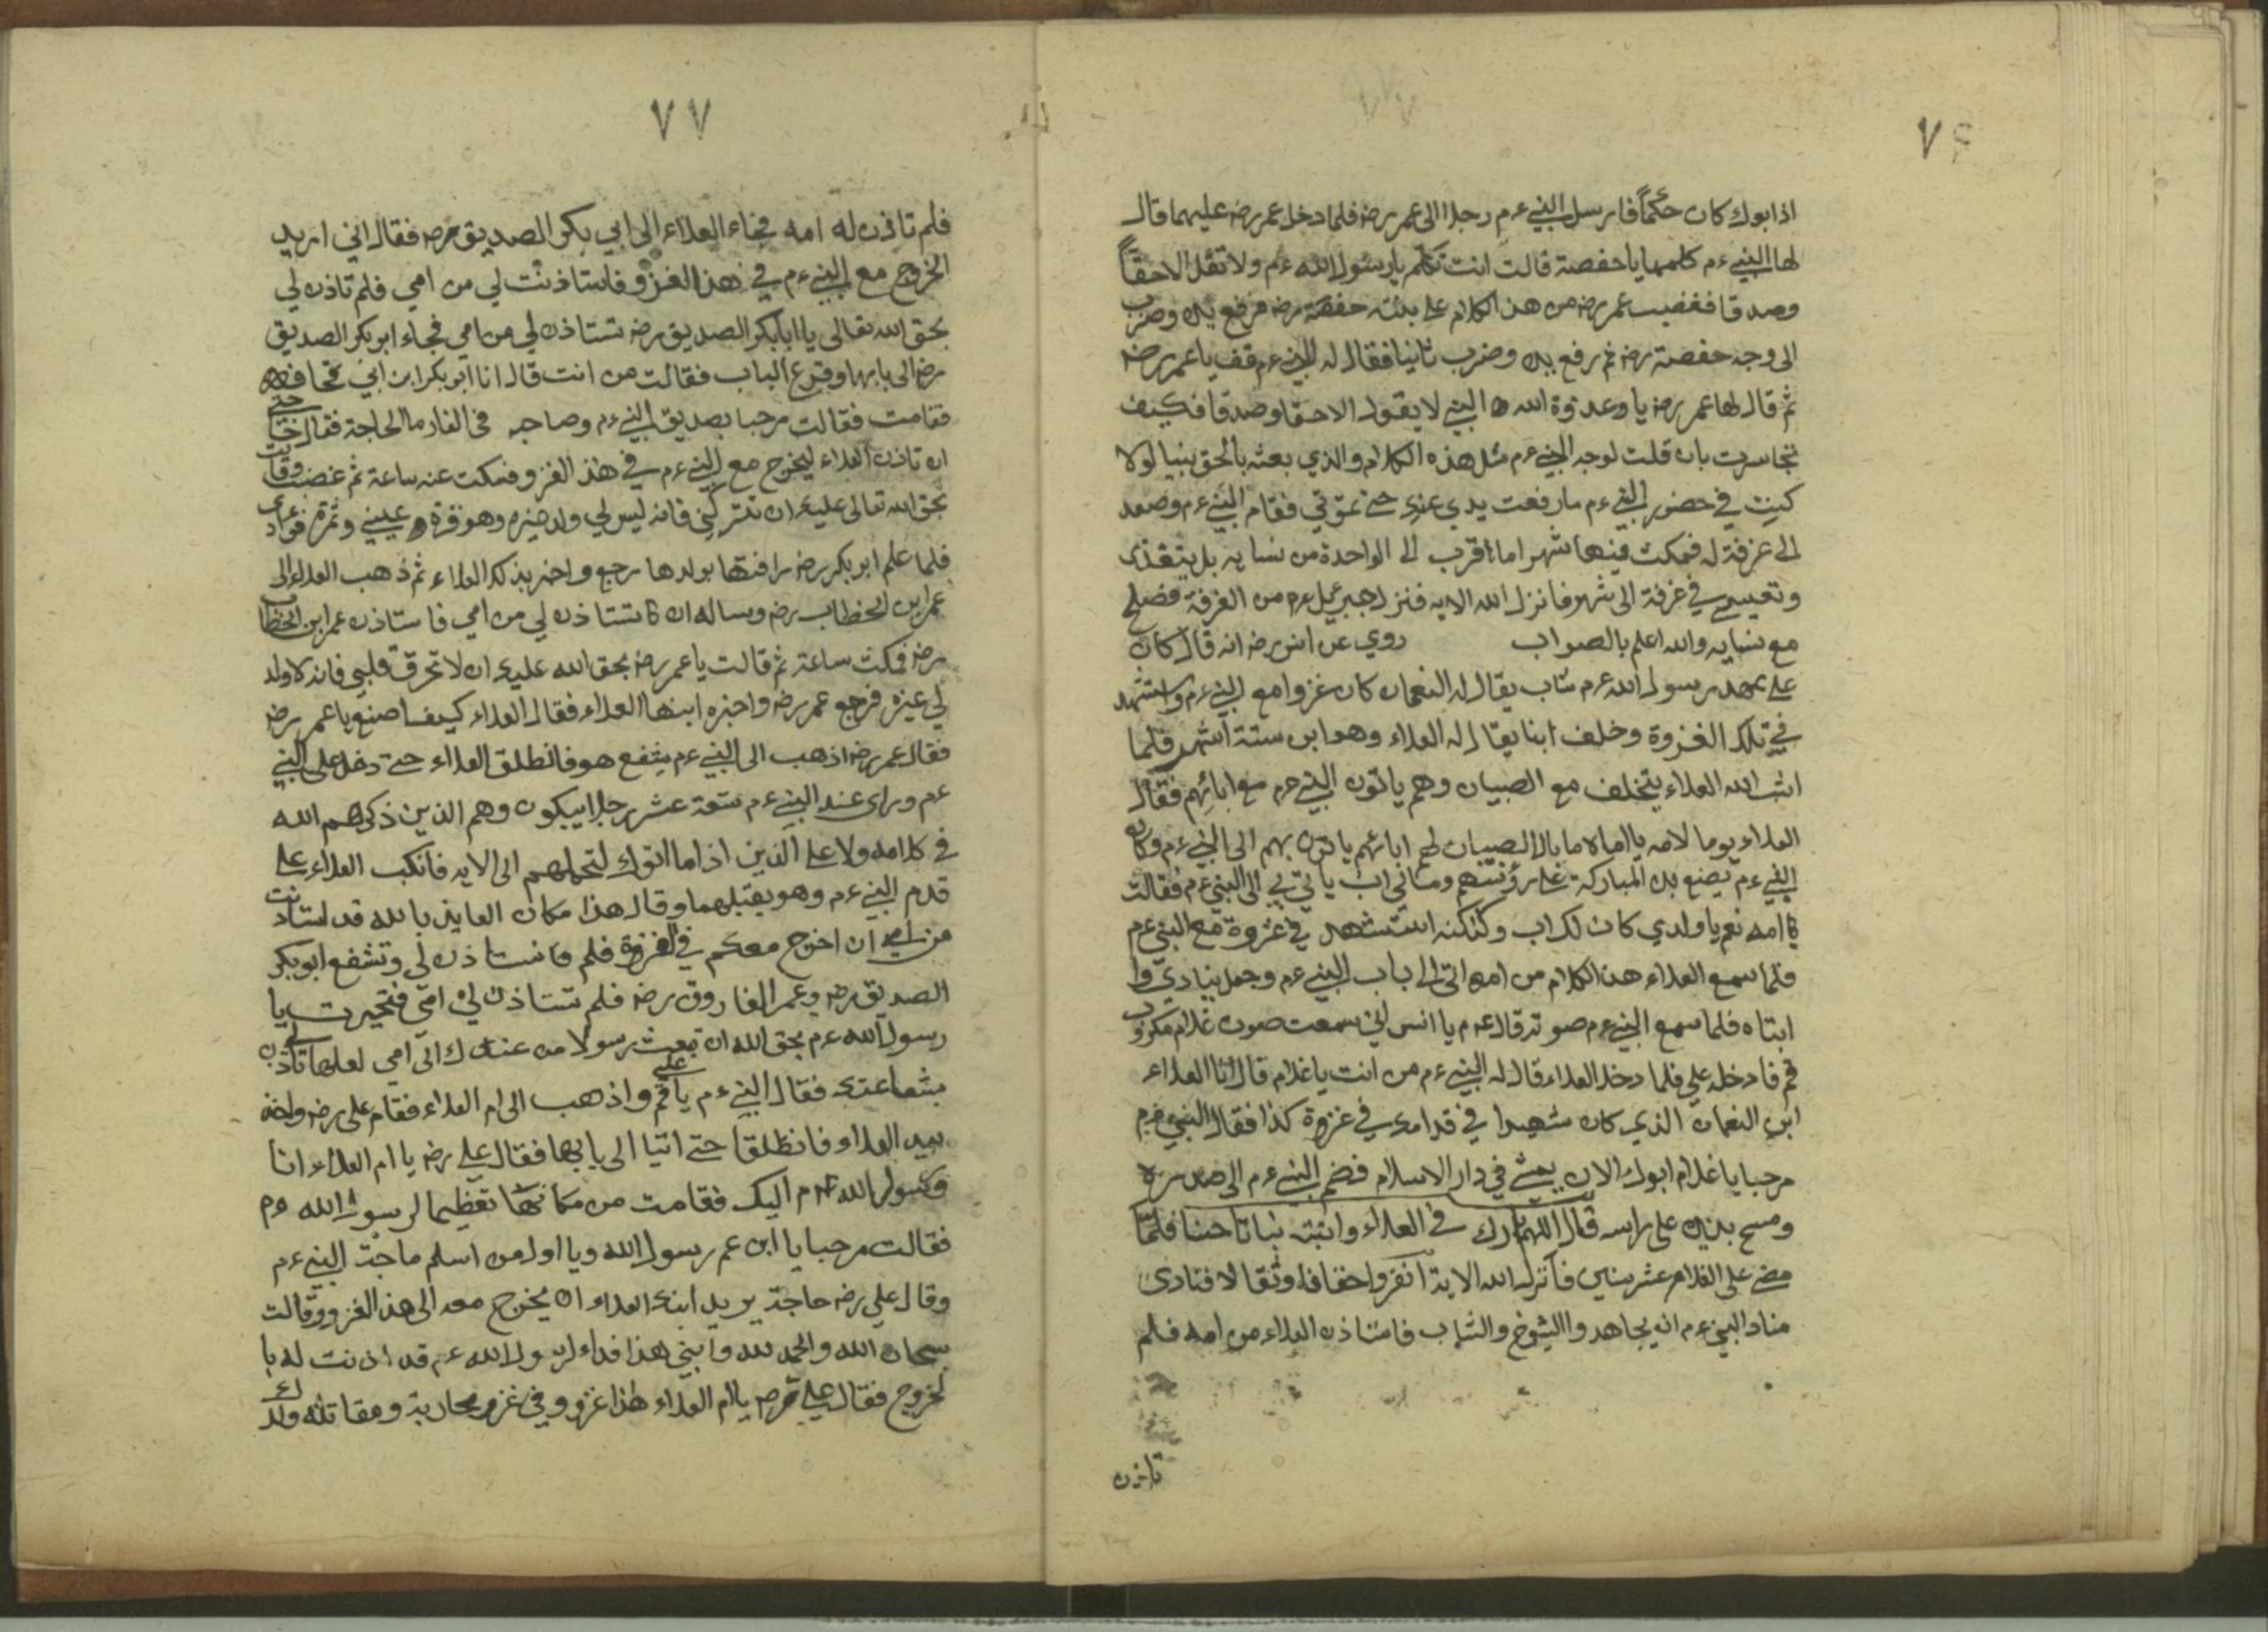 ٧٦
اذا ابوك كان حكماً فارسل النبي ءم رجلا الى عمر رضه فلما دخل عمر رضه عليهما قال
لها النبي ءم كلميها يا حفصة قالت انت تكلم يا رسول الله ءم ولا تقل الا حقاً
وصدقا فغضب عمر رضه من هذا الكلام على بنته حفصة رضه فرفع يده وضرب
الى وجه حفصة رضه ثم رفع يده وضرب ثانيا فقال له النبي ءم قف يا عمر رضه
ثم قال لها عمر رضه يا وعدوة الله النبي لا يقول الا حقا وصدقا فكيف
تجاسرت بان قلت لوجه النبي ءم مثل هذه الكلام والذي بعثه بالحق نبيا لولا
كنت في حضور النبي ءم ما رفعت يدي عندي حتى تموتي فقام النبي ءم وصعد
الى غرفة له فمكث فيها شهرا ما اقرب الى الواحدة من نسايه بل يتغذى
وتعيسى في غرفة الى شهر فانزل الله الايه فنزل جبرئيل ءم من الغرفة فصلح
مع نسايه والله اعلم بالصواب روي عن انس رضه انه قال كان
على عهد رسول الله ءم شاب يقال له النعمان كان غزوا مع النبي ءم واستشهد
في تلك الغزوة وخلف ابنا يقال له العلاء وهو ابن ستة اشهر فلما
انبت الله العلاء يتخلف مع الصبيان وهم ياتون النبي ءم مع ابائهم فقال
العلاء يوما لامه يا اماه ما بال الصبيان لهم ابائهم ياتون بهم الى النبي ءم وكان
النبي ءم يصنع يده المباركة على رؤسهم وماني اب ياتي بي الى النبي ءم فقالت
يا امه نعم يا ولدي كان لك اب ولكنه استشهد في غزوة مع النبي ءم
فلما سمع العلاء هذا الكلام من امه اتى الى باب النبي ءم وجعل ينادي وا
ابتاه فلما سمع النبي ءم صوته قال ءم يا انس اني سمعت صوت غلام مكروب
قم فادخله علي فلما دخل العلاء قال له النبي ءم من انت يا غلام قال انا العلاء
ابن النعمان الذي كان شهيدا في قدامك في غزوة كذا فقال النبي ءم
مرحبا يا غلام ابوك الان يمشي في دار الاسلام فضم النبي ءم الى صدره
ومسح بيديه على راسه قال اللهم بارك في العلاء وانبته نباتا حسنا فلما
مضى على الغلام عشر سنين فانزل الله الاية انفروا خفافا وثقالا فنادى
مناد النبي ءم انه يجاهدوا الشيوخ والشباب فاستاذن العلاء من امه فلم
تاذن
٧٧
فلم تاذن له امه فجاء العلاء الى ابي بكر الصديق رضه فقال اني اريد
الخروج مع النبي ءم في هذا الغزو فاستاذنت لي من امي فلم تاذن لي
بحق الله تعالى يا ابا بكر الصديق رضه تستاذن لي من امي فجاء ابو بكر الصديق
رضه الى بابها وقرع الباب فقالت من انت قال انا ابو بكر ابن ابي قحافه
فقامت فقالت مرحبا بصديق النبي ءم وصاحبه في الغار ما الحاجة فقال حتى
ان تاذن العلاء ليخرج مع النبي ءم في هذا الغزو فسكت عنه ساعة ثم غضبت وقالت
بحق الله تعالى عليك ان تتركني فانه ليس لي ولد غيره وهو قرة عيني وثمرة فؤادي
فلما علم ابو بكر رضه رافتها بولدها رجع واخبر بذلك العلاء ثم ذهب العلاء الى
عمر ابن الخطاب رضه وساله ان تستاذن لي من امي فاستاذن عمر ابن الخطاب
رضه فمكث ساعة ثم قالت يا عمر رضه بحق الله عليك ان لا تحرق قلبي فانه لا ولد
لي غيره فرجع عمر رضه واخبره ابنها العلاء فقال العلاء كيف اصنع يا عمر رضه
فقال عمر رضه اذهب الى النبي ءم يشفع هو فانطلق العلاء حتى دخل على النبي
ءم وراى عند النبي ءم ستعة عشر رجلا يبكون وهم الذين ذكرهم الله
في كلامه ولا على الذين اذا ما اتوك لتحملهم الى الايه فانكب العلاء على
قدم النبي ءم وهو يقبلهما وقال هذا مكان العايذ بالله قد استاذنت
من امي ان اخرج معكم في الغزوة فلم تستاذن لي وتشفع ابو بكر
الصديق رضه وعمر الفاروق رضه فلم تستاذن لي امي فتحيرت يا
رسول الله ءم بحق الله ان تبعث رسولا من عندك الى امي لعلها تاذن لي
بشفاعتك فقال النبي ءم يا علي قم واذهب الى ام العلاء فقام علي رضه واخذ
بيد العلاء فانطلقا حتى اتيا الى بابها فقال علي رضه يا ام العلاء انا
رسول رسول الله ءم اليك فقامت من مكانها تعظيما لرسول الله ءم
فقالت مرحبا يا ابن عم رسول الله ويا اول من اسلم ما حاجة النبي ءم
وقال علي رضه حاجة يريد ابنك العلاء ان يخرج معه الى هذا الغزو وقالت
سبحان الله والحمد لله وابني هذا فداء لرسول الله ءم قد اذنت له با
لخروج فقال علي رضه يا ام العلاء هذا غزو وفي غزو محاربة ومقاتلة ولدك